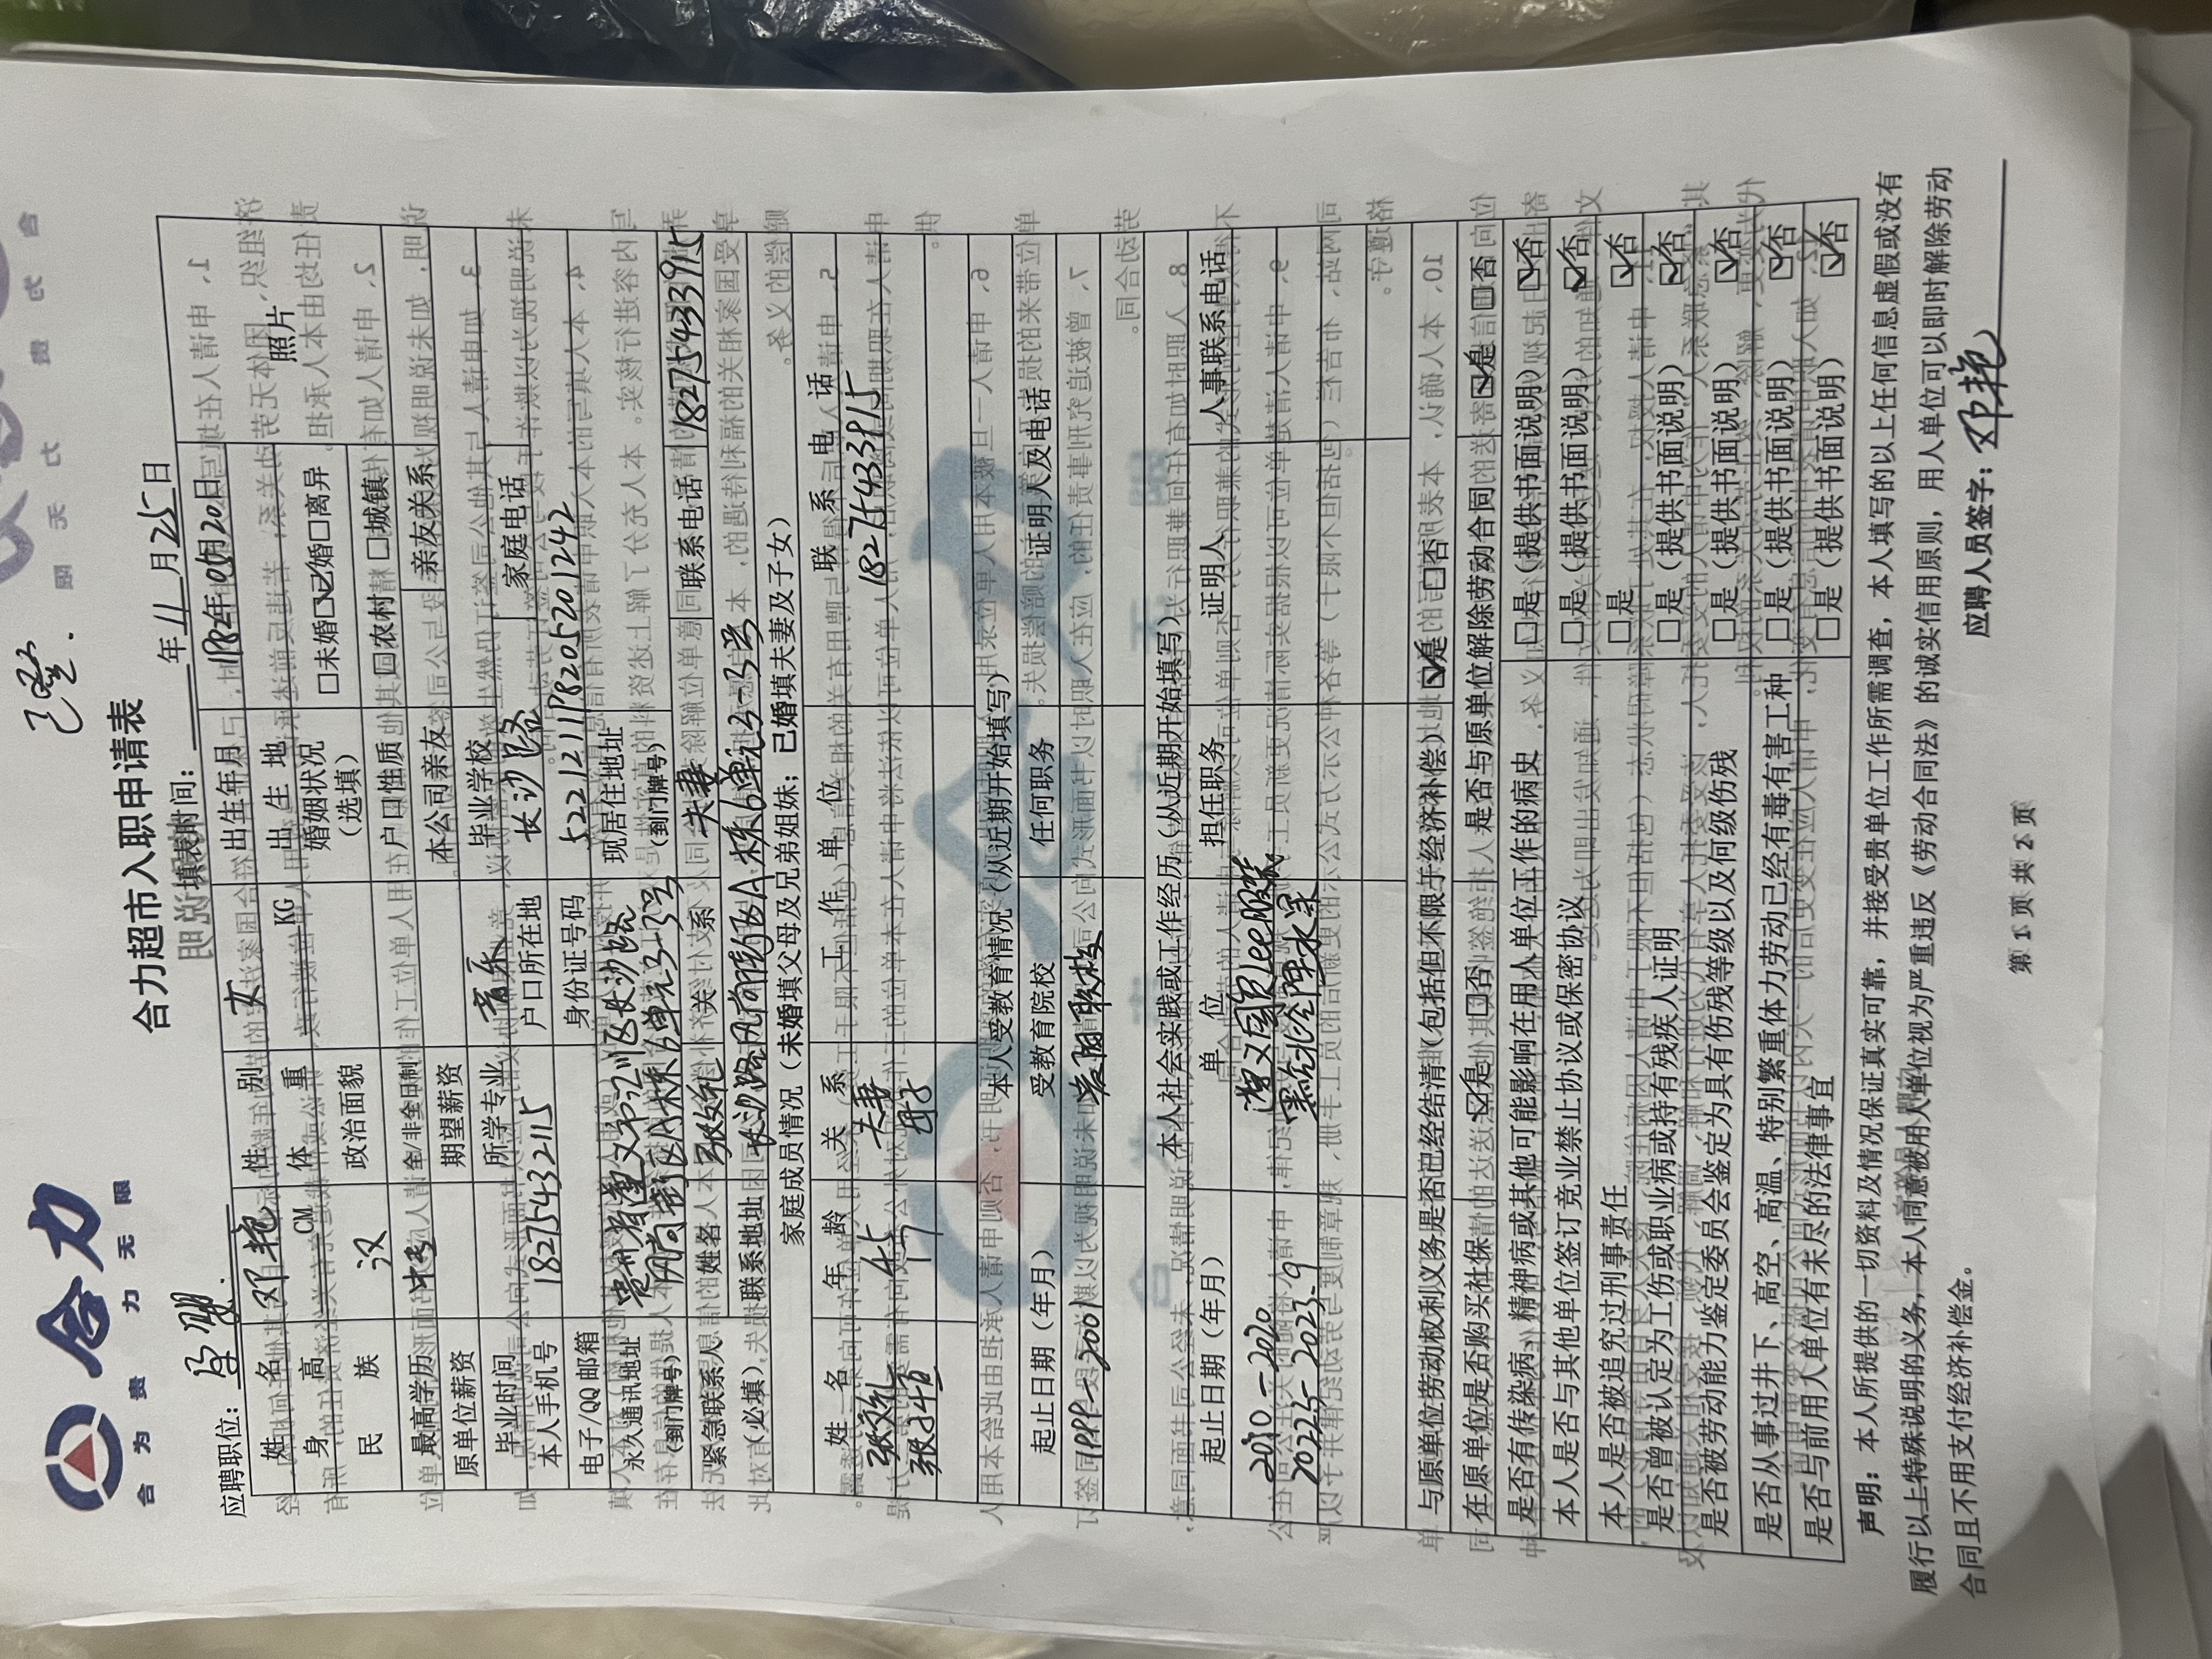 合力
合 为 贵 力 无 限
合力超市入职申请表
应聘职位：
填表时间： 年 11 月 25 日
姓 名 邓艳 性 别 女 出生年月 1982年05月20日 照片
身 高 CM 体 重 KG 出 生 地
民 族 汉 政治面貌 婚姻状况（选填） □未婚☑已婚□离异
户口性质 □农村 □城镇
最高学历 中专 全/非全日制 本公司亲友 亲友关系
原单位薪资 期望薪资
毕业时间 所学专业 音乐 毕业学校 家庭电话
本人手机号 18275432115 户口所在地 长沙路
电子/QQ邮箱 身份证号码 522121198205201242
永久通讯地址（到门牌号） 现居住地址（到门牌号）
紧急联系人（必填） 姓名 关 系 夫妻 联系电话 18275433915
联系地址
家庭成员情况（未婚填父母及兄弟姐妹；已婚填夫妻及子女）
姓 名 年 龄 关 系 工 作 单 位 联 系 电 话
45 夫妻 18275433915
17 母子
本人受教育情况（从近期开始填写）
起止日期（年月） 受教育院校 任何职务 证明人及电话
1999-2001
本人社会实践或工作经历（从近期开始填写）
起止日期（年月） 单 位 担任职务 证明人 人事联系电话
2010-2020
与原单位劳动权利义务是否已经结清（包括但不限于经济补偿） ☑是 □否
在原单位是否购买社保 ☑是 □否 是否与原单位解除劳动合同 ☑是 □否
是否有传染病、精神病或其他可能影响在用人单位工作的病史 □是（提供书面说明） ☑否
本人是否与其他单位签订竞业禁止协议或保密协议 □是（提供书面说明） ☑否
本人是否被追究过刑事责任 □是 ☑否
是否曾被认定为工伤或职业病或持有残疾人证明 □是（提供书面说明） ☑否
是否被劳动能力鉴定委员会鉴定为具有伤残等级以及何级伤残 □是（提供书面说明） ☑否
是否从事过井下、高空、高温、特别繁重体力劳动已经有毒有害工种 □是（提供书面说明） ☑否
是否与前用人单位有未尽的法律事宜 □是（提供书面说明） ☑否
声明：本人所提供的一切资料及情况保证真实可靠，并接受贵单位工作所需调查，本人填写的以上任何信息虚假或没有
履行以上特殊说明的义务，本人同意被用人单位视为严重违反《劳动合同法》的诚实信用原则，用人单位可以即时解除劳动
合同且不用支付经济补偿金。
应聘人员签字：邓艳
第 1 页 共 2 页